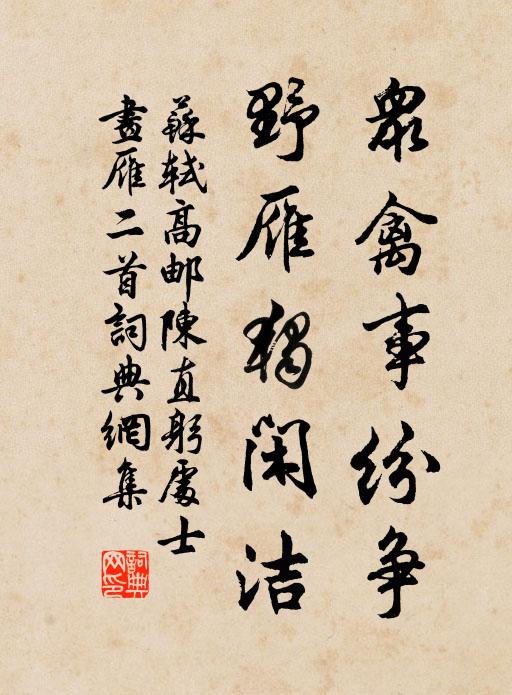 衆禽事紛爭
野雁獨閑洁
蘇軾高邮陳直躬處士
畫雁二首詞典網集
詞典网印